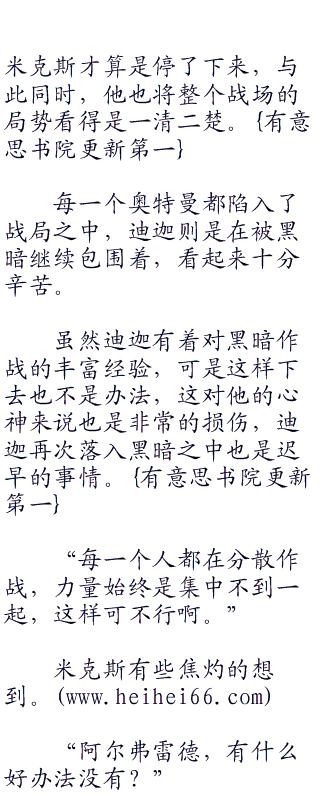 米克斯才算是停了下来，与
此同时，他也将整个战场的
局势看得是一清二楚。{有意
思书院更新第一}
每一个奥特曼都陷入了
战局之中，迪迦则是在被黑
暗继续包围着，看起来十分
辛苦。
虽然迪迦有着对黑暗作
战的丰富经验，可是这样下
去也不是办法，这对他的心
神来说也是非常的损伤，迪
迦再次落入黑暗之中也是迟
早的事情。{有意思书院更新
第一}
“每一个人都在分散作
战，力量始终是集中不到一
起，这样可不行啊。”
米克斯有些焦灼的想
到。(www.heihei66.com)
“阿尔弗雷德，有什么
好办法没有？”